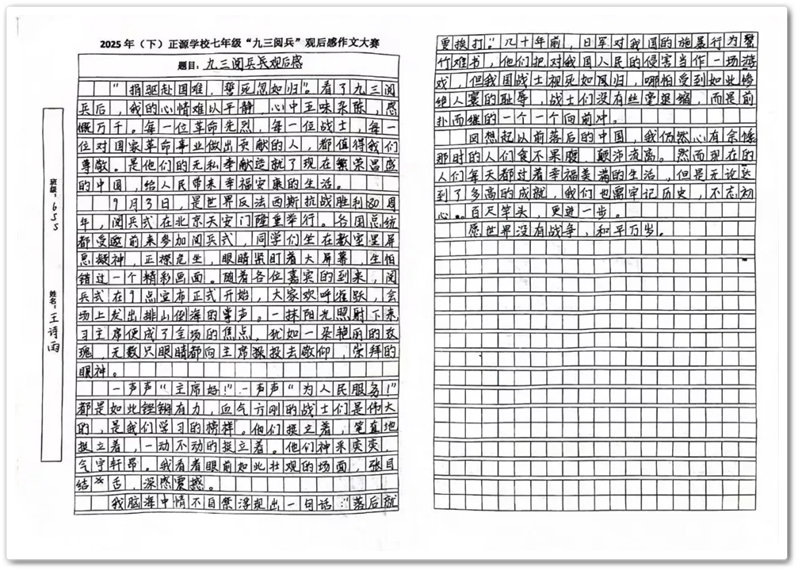 2025年（下）正源学校七年级“九三阅兵”观后感作文大赛
题目：九三阅兵观后感
班级：655
姓名：王诗雨
“捐躯赴国难，视死忽如归”。看了九三阅
兵后，我的心情难以平静，心中五味杂陈，感
慨万千。每一位革命先烈，每一位战士，每一
位对国家革命事业做出贡献的人，都值得我们
尊敬。是他们的无私奉献造就了现在繁荣昌盛
的中国，给人民带来幸福安康的生活。
9月3日，是世界反法西斯抗战胜利80周
年，阅兵式在北京天安门隆重举行。各国总统
都受邀前来参加阅兵式，同学们坐在教室里屏
息凝神，正襟危坐，眼睛紧盯着大屏幕，生怕
错过一个精彩画面。随着各位嘉宾的到来，阅
兵式在9点宣布正式开始，大家欢呼雀跃，会
场上发出排山倒海的掌声。一抹阳光照射下来
习主席便成了全场的焦点，犹如一朵艳丽的玫
瑰，无数只眼睛都向主席投去敬仰，崇拜的
眼神。
一声声“主席好！”一声声“为人民服务！”
都是如此铿锵有力，血气方刚的战士们是伟大
的，是我们学习的榜样。他们挺立着，笔直地
挺立着，一动不动的挺立着。他们神采奕奕，
气宇轩昂。我看着眼前如此壮观的场面，张目
结舌，深感震撼。
我脑海中情不自禁浮现出一句话：“落后就
要挨打。”几十年前，日军对我国的施暴行为罄
竹难书，他们把对我国人民的侵害当作一场游
戏，但我国战士视死如归，哪怕受到如此惨
绝人寰的耻辱，战士们没有丝毫退缩，而是前
扑而继的一个一个向前冲。
回想起以前落后的中国，我仍然心有余悸
那时的人们食不果腹，颠沛流离。然而现在的
人们每天都对着幸福美满的生活，但是无论达
到了多高的成就，我们也需牢记历史，不忘初
心。百尺竿头，更进一步。
愿世界没有战争，和平万岁。